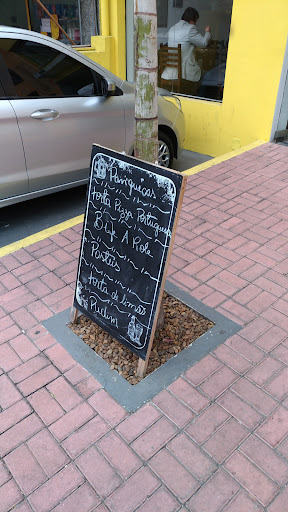 Panquecas
Torta Pizza Portuguesa
Bife A Role
Pastéis
Torta de limão
Pudim